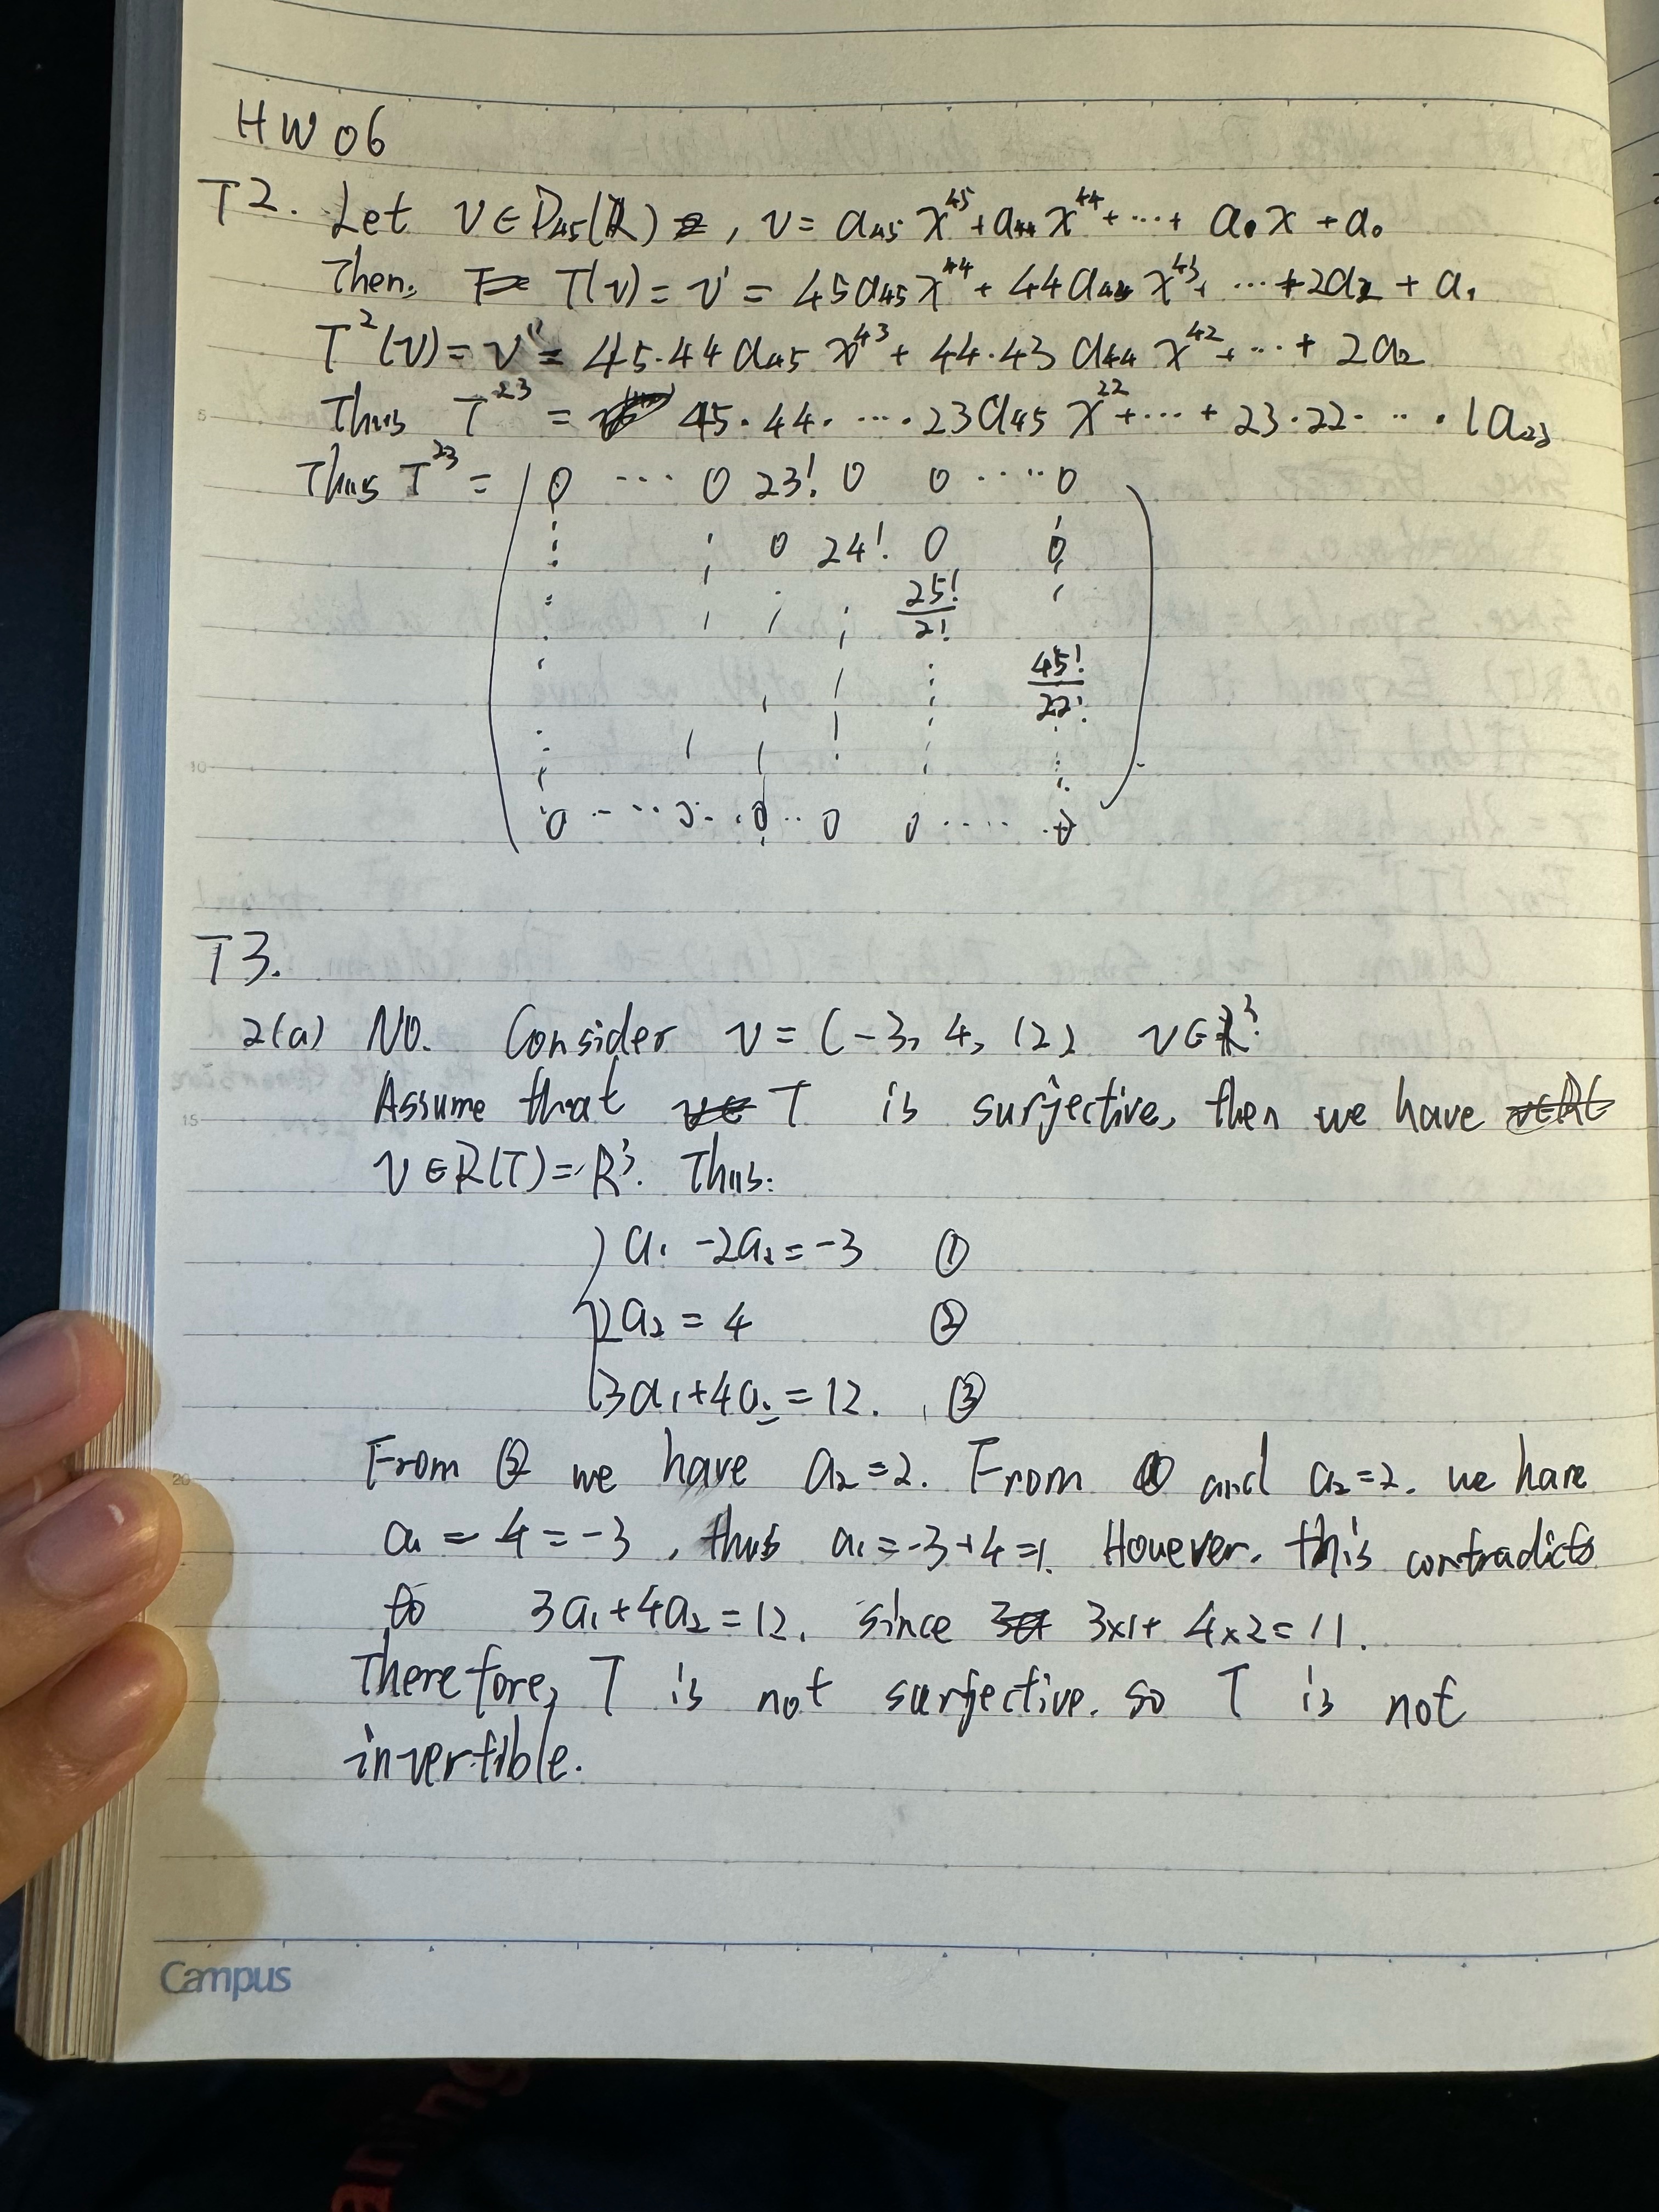 HW 06
T2. Let v ∈ P₄₅(R) , v = a₄₅ x⁴⁵ + a₄₄ x⁴⁴ + ··· + a₁ x + a₀
Then, T(v) = v' = 45a₄₅ x⁴⁴ + 44a₄₄ x⁴³ + ··· + 2a₂ + a₁
T²(v) = v'' = 45·44 a₄₅ x⁴³ + 44·43 a₄₄ x⁴² + ··· + 2a₂
Thus T²³ = 45·44· ··· ·23a₄₅ x²² + ··· + 23·22· ··· ·1a₂₃
Thus T²³ = ( 0 ··· 0 23! 0 0 ···· 0
0 24! 0 0
25!/2!
45!/22!
0 ··· 0 ·· 0 ·· 0 0 ···· 0 )
T3.
2(a) NO. Consider v = (-3, 4, 12) v ∈ R³.
Assume that T is surjective, then we have
v ∈ R(T) = R³. Thus:
a₁ - 2a₂ = -3 ①
2a₂ = 4 ②
3a₁ + 4a₂ = 12. ③
From ② we have a₂ = 2. From ① and a₂ = 2. we have
a₁ - 4 = -3, thus a₁ = -3+4 = 1. However, this contradicts
to 3a₁ + 4a₂ = 12, since 3×1 + 4×2 = 11.
Therefore, T is not surjective. so T is not
invertible.
5
10
15
20
Campus